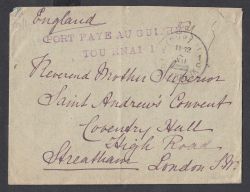 England
PORT PAYE AU GUICHET
TOURNAI 1
Reverend Mother Superior
Saint Andrew's Convent
Coventry Hall
High Road
Streatham London S.W.